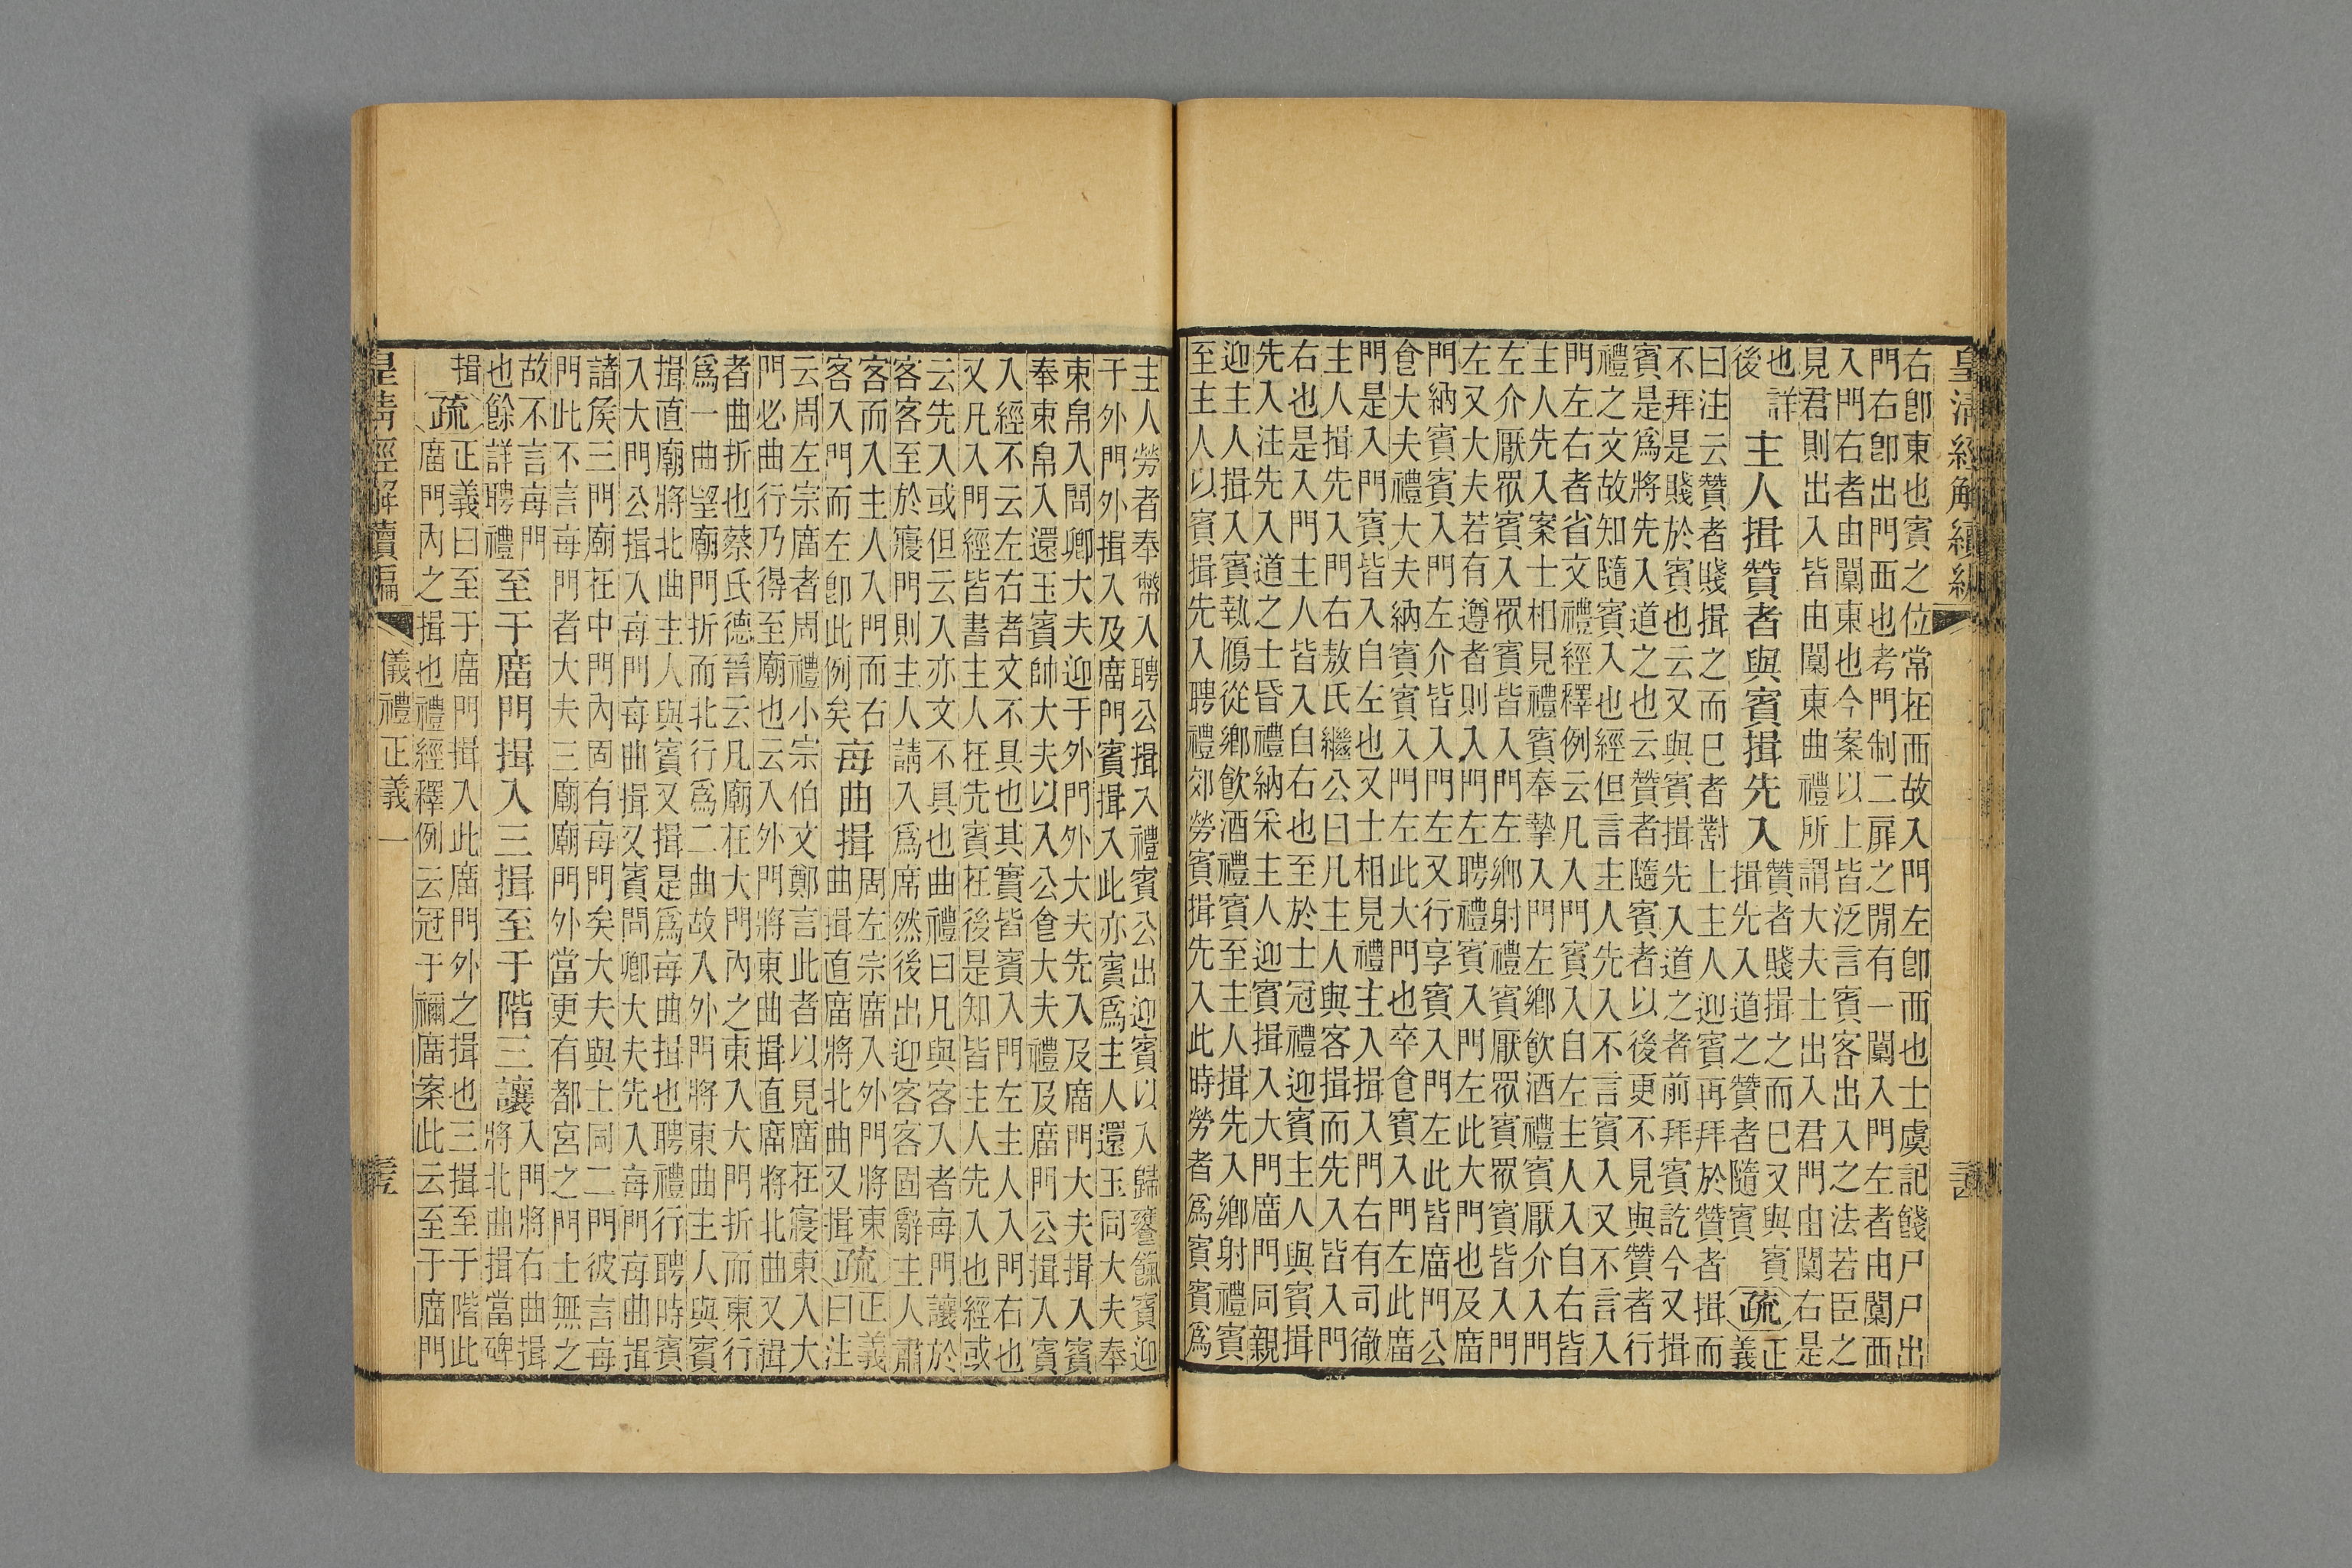 皇清經解續編
右卽東也賓之位常在西故入門左卽西也士虞記餞尸尸出
門右卽出門西也考門制二扉之閒有一闑入門左者由闑西
入門右者由闑東也今案以上皆泛言賓客出入之法若臣之
見君則出入皆由闑東曲禮所謂大夫士出入君門由闑右是
也詳
後
主人揖贊者與賓揖先入
贊者賤揖之而已又與賓
揖先入道之贊者隨賓
疏
正
義
曰注云贊者賤揖之而已者對上主人迎賓再拜於贊者揖而
不拜是賤於賓也云又與賓揖先入道之者前拜賓訖今又揖
賓是爲將先入道之也云贊者隨賓者以後更不見與贊者行
禮之文故知隨賓入也經但言主人先入不言賓入又不言入
門左右者省文禮經釋例云凡入門賓入自左主人入自右皆
主人先入案士相見禮賓奉摯入門左鄉飲酒禮賓厭介入門
左介厭眾賓入眾賓皆入門左鄉射禮賓厭眾賓眾賓皆入門
左又大夫若有遵者則入門左聘禮賓入門左此大門也及廟
門納賓賓入門左介皆入門左又行享賓入門左此皆廟門公
食大夫禮大夫納賓賓入門左此大門也卒食賓入門左此廟
門是入門賓皆入自左也又士相見禮主人揖入門右有司徹
主人揖先入門右敖氏繼公曰凡主人與客揖而先入皆入門
右也是入門主人皆入自右也至於士冠禮迎賓主人與賓揖
先入注先入道之士昏禮納采主人迎賓揖入大門廟門同親
迎主人揖入賓執鴈從鄉飲酒禮賓至主人揖先入鄉射禮賓
至主人以賓揖先入聘禮郊勞賓揖先入此時勞者爲賓賓爲
主人勞者奉幣入聘公揖入禮賓公出迎賓以入歸饔餼賓迎
于外門外揖入及廟門賓揖入此亦賓爲主人還玉同大夫奉
束帛入問卿大夫迎于外門外大夫先入及廟門大夫揖入賓
奉束帛入還玉賓帥大夫以入公食大夫禮及廟門公揖入賓
入經不云左右者文不具也其實皆賓入門左主人入門右也
又凡入門經皆書主人在先賓在後是知皆主人先入也經或
云先入或但云入亦文不具也曲禮曰凡與客入者每門讓於
客客至於寢門則主人請入爲席然後出迎客客固辭主人肅
客而入主人入門而右
客入門而左卽此例矣
每曲揖
周左宗廟入外門將東
曲揖直廟將北曲又揖
疏
正義
曰注
云周左宗廟者周禮小宗伯文鄭言此者以見廟在寢東入大
門必曲行乃得至廟也云入外門將東曲揖直廟將北曲又揖
者曲折也蔡氏德晉云凡廟在大門內之東入大門折而東行
爲一曲望廟門折而北行爲二曲故入外門將東曲主人與賓
揖直廟將北曲主人與賓又揖是爲每曲揖也聘禮行聘時賓
入大門公揖入每門每曲揖又賓問卿大夫先入每門每曲揖
諸侯三門廟在中門內固有每門矣大夫與士同二門彼言每
門此不言每門者大夫三廟廟門外當更有都宮之門士無之
故不言每門
也餘詳聘禮
至于廟門揖入三揖至于階三讓
入門將右曲揖
將北曲揖當碑
揖
疏
正義曰至于廟門揖入此廟門外之揖也三揖至于階此
廟門內之揖也禮經釋例云冠于禰廟案此云至于廟門
皇清經解續編
儀禮正義一